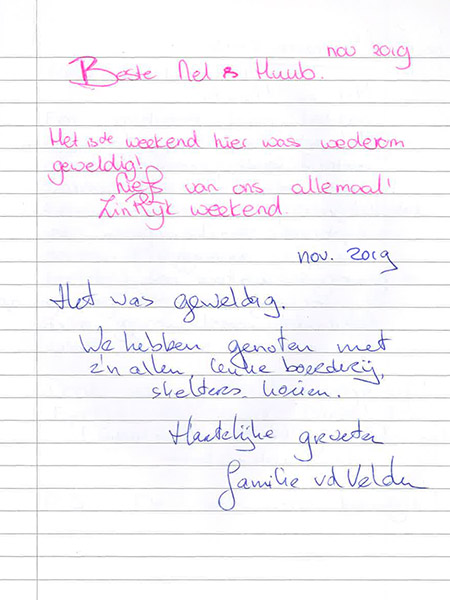 nov 2019
Beste Nel & Huub.
Het is de weekend hier was wederom
geweldig!
Liefs van ons allemaal!
ZinRijk weekend.
nov. 2019
Het was geweldig.
We hebben genoten met
z'n allen, leuke boerderij,
skelters, koeien.
Hartelijke groeten
familie vd Velden